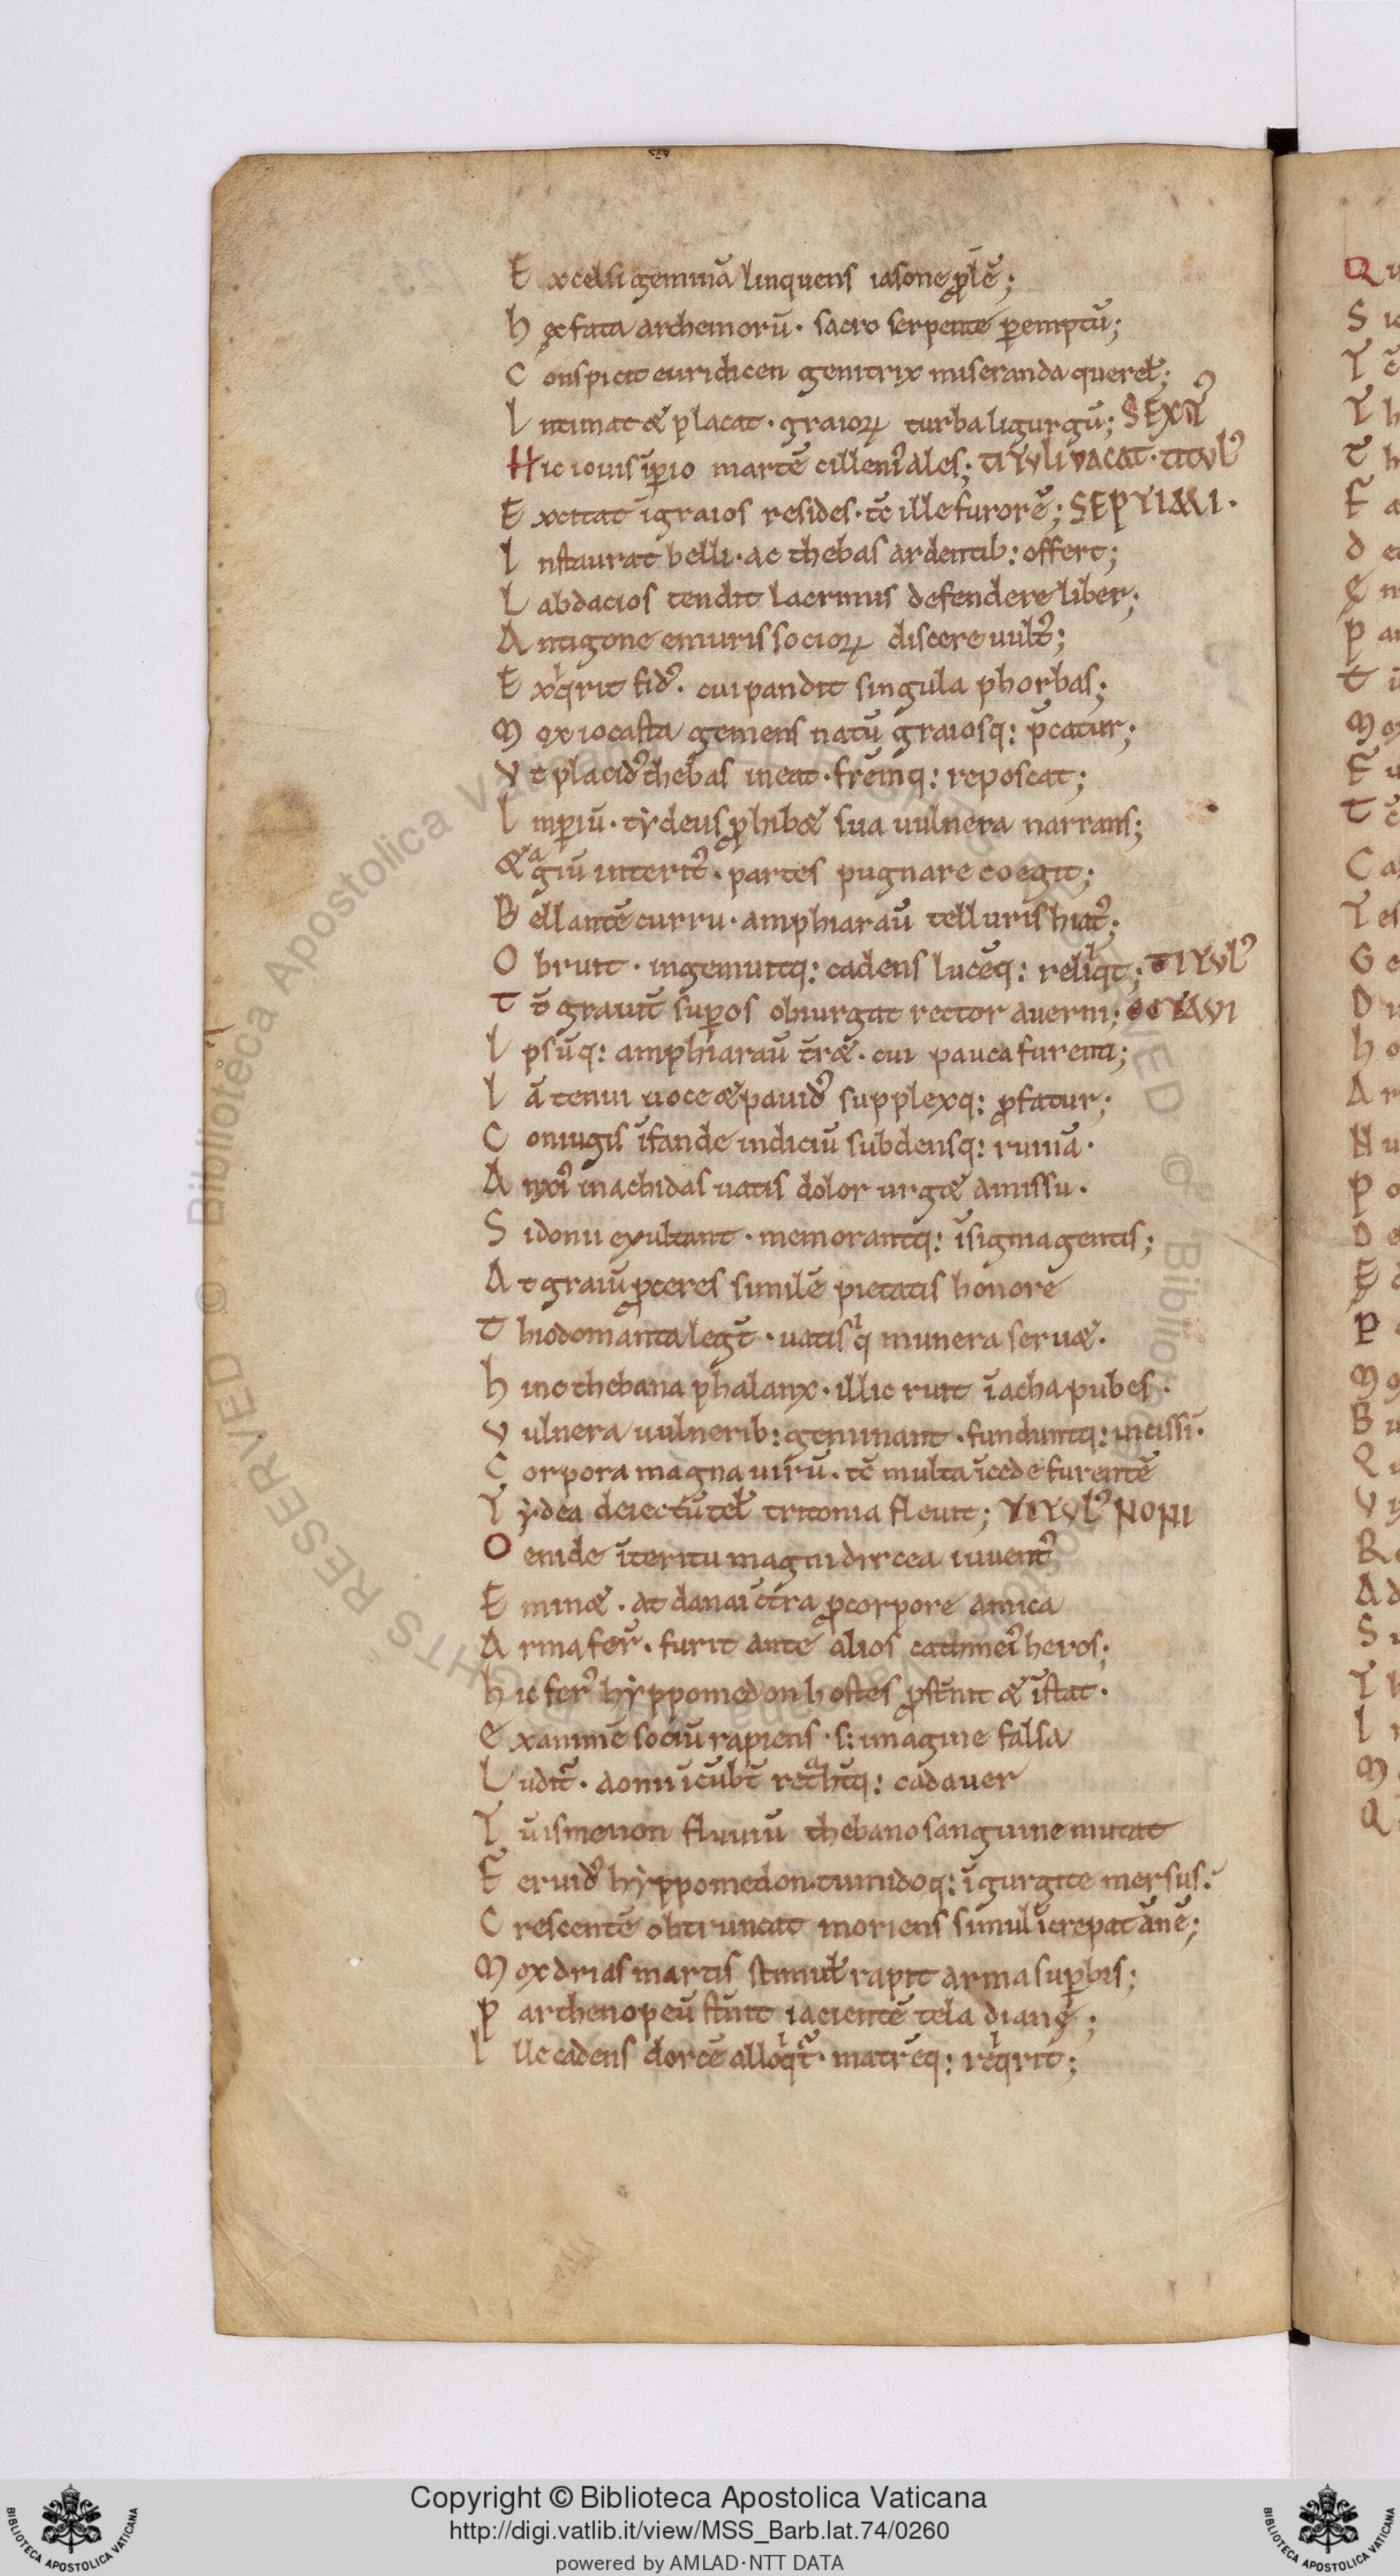 E xcelsi geminā linquens iasone ꝓlē;
h ęc fata archemorū. sacro serpente ꝑemptū;
C onspicit euridicen genitrix miseranda querel̄;
I ntimat & placat. graioꝝ turba ligurgū; SEXTꝰ
Hic iouis īꝑio martē cilleniꝰ ales; TITULI VACAT. TITULꝰ
E xcitat īgraios resides. tc̄ ille furorē; SEPTIMI.
I nstaurat belli. ac thebas ardentib: offert;
L abdacios tendit lacrimis defendere liber;
A ntigone emuris socioꝝ discere uultꝰ;
E xqͥrit fidꝰ. cui pandit singula phorbas;
M ox iocasta gemens natū graiosq: p̄catur;
V t placidꝰ thebas ineat. frēmq: reposcat;
I mꝑiū. tẏdeus ꝓhib& sua uulnera narrans;
&ᵃgiū interitꝰ. partes pugnare coegit;
B ellantē curru. amphiaraū telluris hiatꝰ;
O bruit. ingemuitq: cadens lucēq: reliqͥt; TITULꝰ
T c̄ grauit̄ suꝑos obiurgat rector auerni; OCTAVI
I psūq: amphiaraū t̄r&. cui pauca furenti;
I ā tenui uoce & pauidꝰ supplexq: ꝓfatur;
C oniugis īfande indiciū subdensq: ruinā.
A nxiꝰ inachidas uatis dolor urg& amissu.
S idonii exultant. memorantq: īsignia gentis;
A t graiū ꝓceres similē pietatis honorē
T hiodomanta legt̄. uatis qͥ munera seru&.
h inc thebana phalanx. illic ruit īacha pubes.
V ulnera uulnerib: geminant. funduntq: uicissī.
C orpora magna uirū. tc̄ multa īcede furentē
T ẏdea deiectū tel̄ tritonia fleuit; TITULꝰ NONI
O enide īteritu magni dircea iuuentꝰ
E min&. at danai ct̄ra ꝓcorpore amica
A rma fer̄. furit ante alios cathmeiꝰ heros;
h ic ferꝰ hẏppomedon hostes ꝓst̄nit & īstat.
E xanimē sociū rapiens. s: imagine falsa
L udit̄. aonii īcubt̄ retͣhūtq: cadauer
T ū ismenon fluuiū thebano sanguine mutat
F eruidꝰ hẏppomedon. tumidoq: īgurgite mersus.
C rescentē obtruncat moriens simul īcrepat ānē;
M ox drias martis stimul̄ rapit arma suꝑbis;
P arthenopeū st̄nit iacientē tela dianę;
I lle cadens dorcē alloqͥt̄. matrēq: reqͥrit;
Copyright © Biblioteca Apostolica Vaticana
http://digi.vatlib.it/view/MSS_Barb.lat.74/0260
powered by AMLAD·NTT DATA